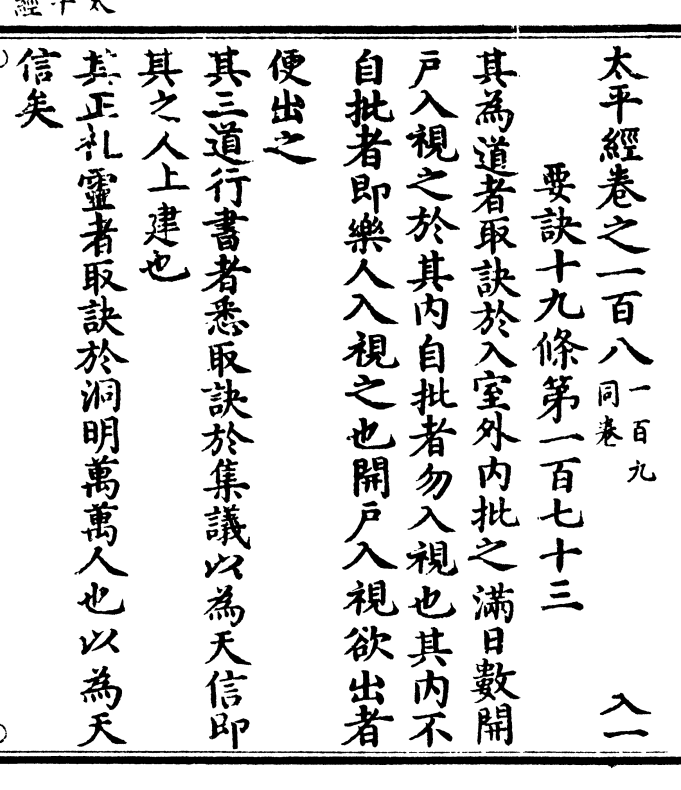 太平經卷之一百八 一百九同卷 入一
要訣十九條第一百七十三
其為道者取訣於入室外內批之滿日數開
戶入視之於其內自批者勿入視也其內不
自批者即樂人入視之也開戶入視欲出者
便出之
其三道行書者悉取訣於集議以為天信即
其之人上建也
其正礼靈者取訣於洞明萬萬人也以為天
信矣